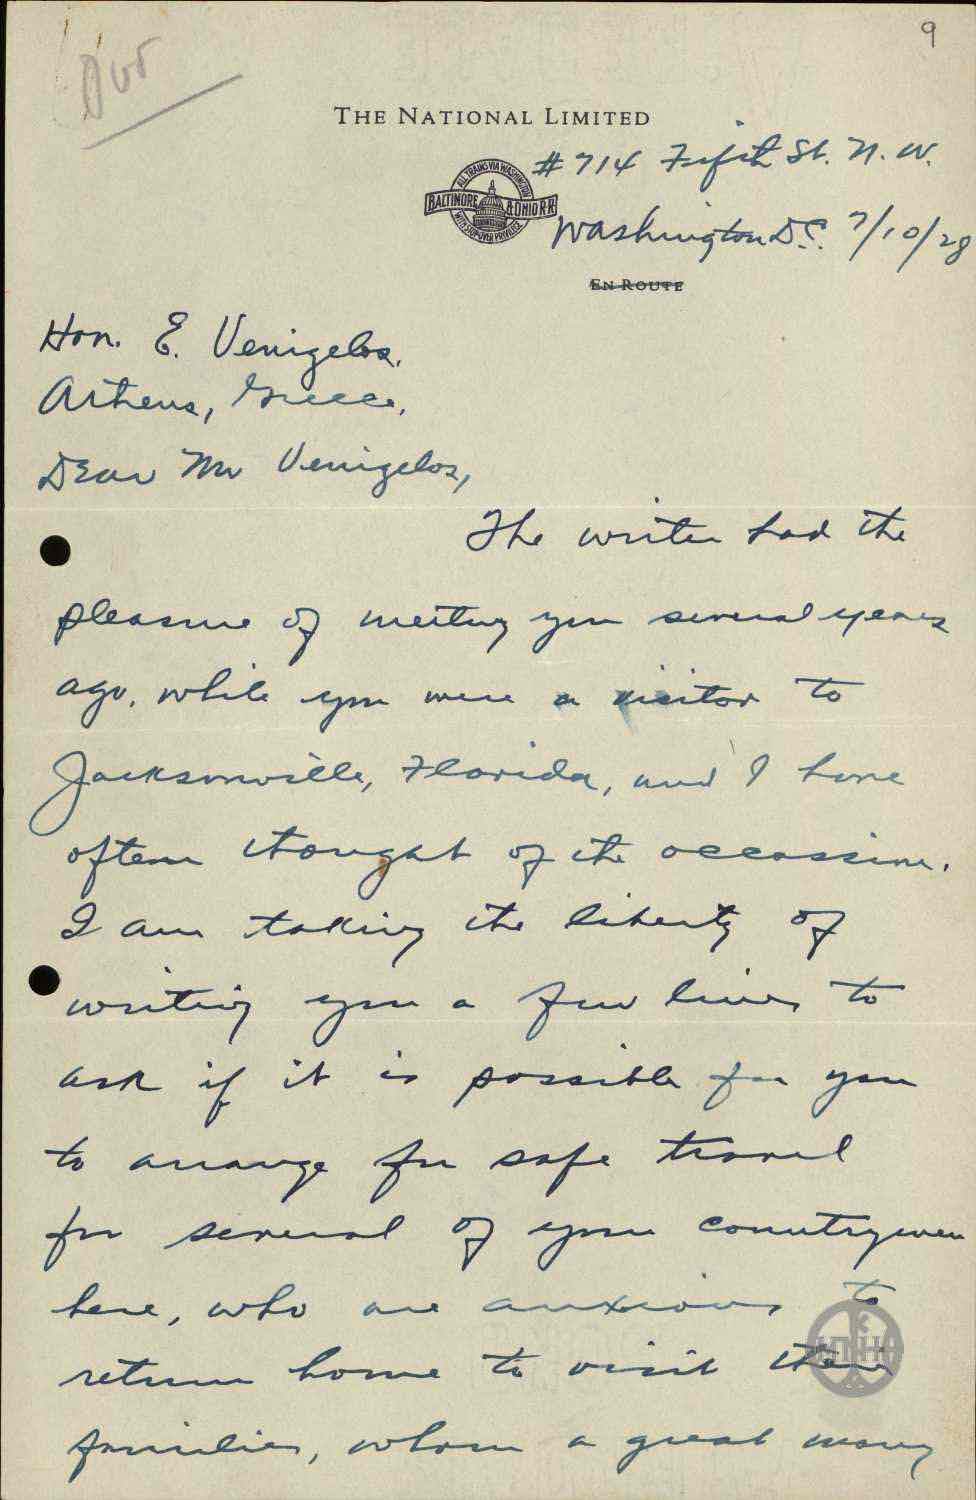 9
THE NATIONAL LIMITED
ALL TRAINS VIA WASHINGTON
BALTIMORE & OHIO R.R.
WITH STOP-OVER PRIVILEGE
# 714 Fifth St. N. W.
Washington D.C. 7/10/28
EN ROUTE
Hon. E. Venizelos,
Athens, Greece.
Dear Mr Venizelos,
The writer had the
pleasure of meeting you several years
ago, while you were a visitor to
Jacksonville, Florida, and I have
often thought of the occassion.
I am taking the liberty of
writing you a few lines to
ask if it is possible for you
to arrange for safe travel
for several of your countrymen
here, who are anxious to
return home to visit their
families, whom a great many